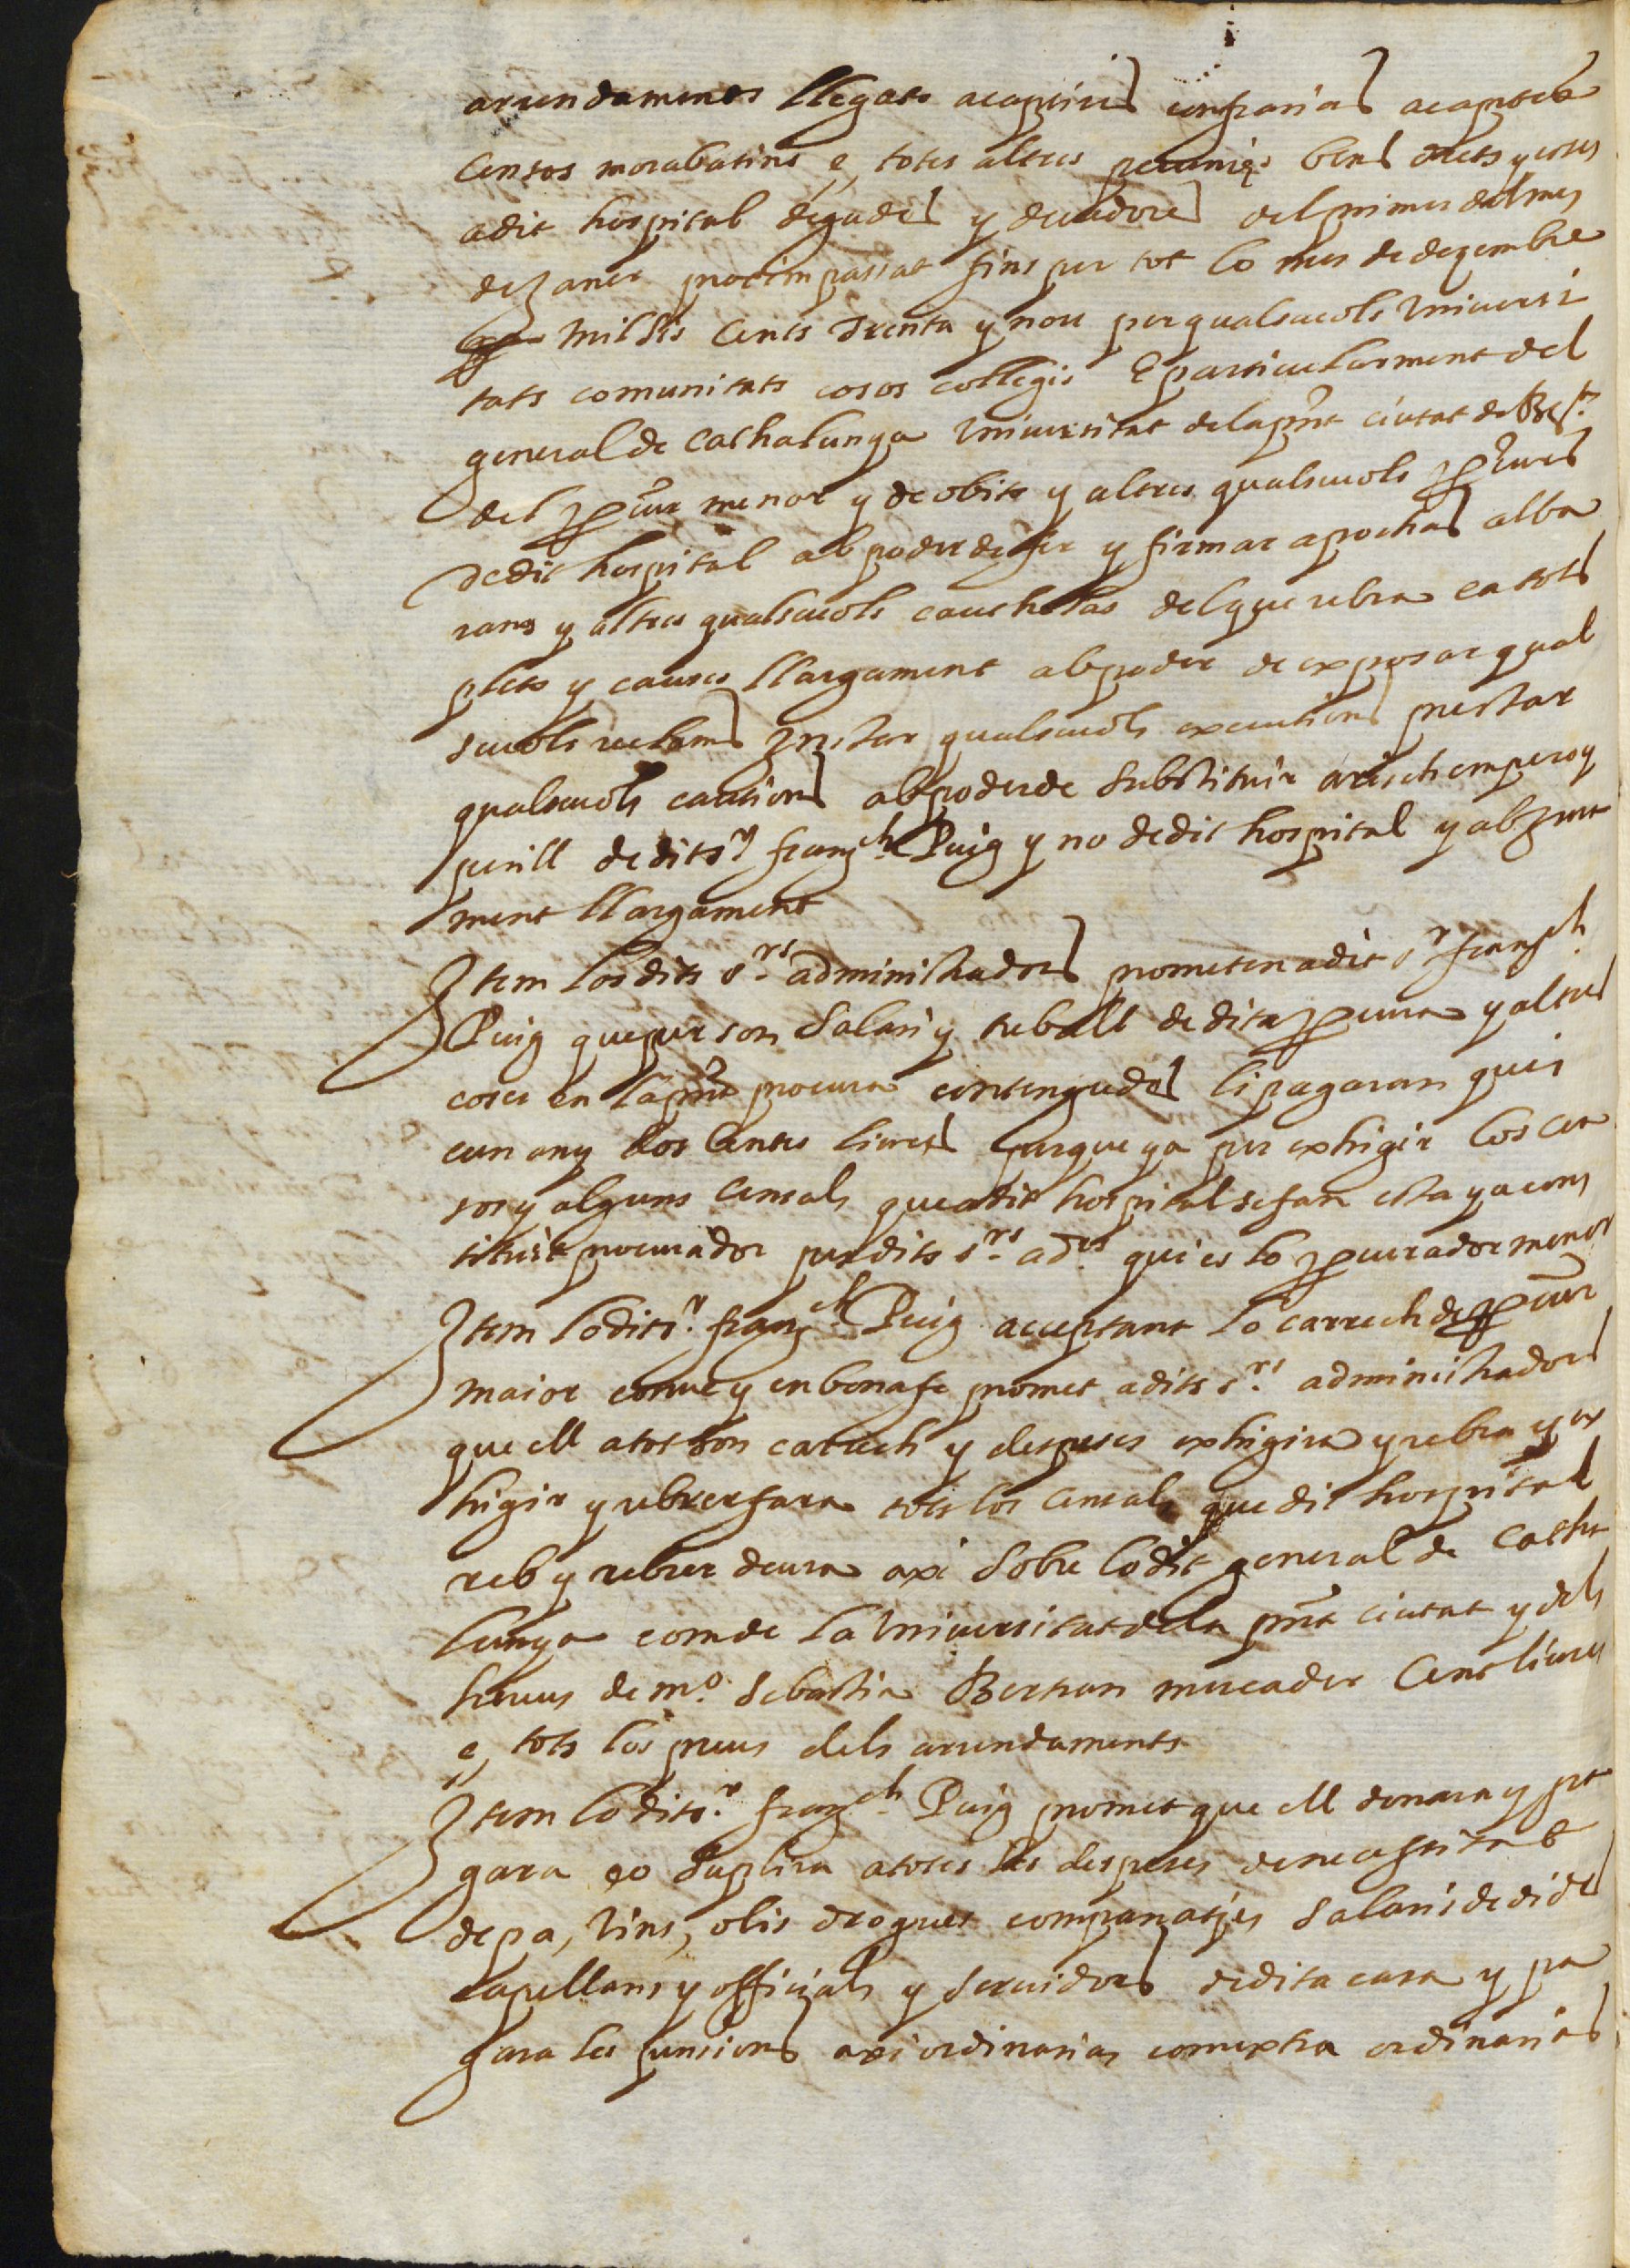 arrendaments llegats acaptiris confrarias acaptes
censos morabatins e, totes altres pecunies bens drets y coses
a dit hospital degudes y devadores del primer del mes
de Janer proxim passat fins per tot lo mes de dezembre
mil sis cents trenta y nou per qualsevols Universi
tats comunitats cosos collegis E particularment del
general de cathalunya Universitat dela pnt ciutat de Bar.na
del pcur menor y de obits y altres qualsevols pcures
de dit hospital ab poder de fer y firmar apochas alba
rans y altres qualsevols cauthelas del que rebra E a tots
plets y causes llargament ab poder de exposar qual
sevols reclams Instar qualsevols executions prestar
qualsevols cautions ab poder de substituir a risch empero y
perill de dit s.r fran.ch Puig y no de dit hospital y ab Jura
ment llargament
Item los dits s.rs administradors prometen a dit s.r fran.ch
Puig que per son salari y treball de dita pcura y altres
coses en la pnt procura contengudas li pagaran quis
cun any dos Centes liures perque ya per exhigir los cen
sos y alguns Censals que a dit hospital se fan esta ya cons
tituit procurador per dits s.rs ad.rs qui es lo pcurador menor
Item lo dit s.r fran.ch Puig acceptant lo carrech de pcur
maior conve y en bona fe promet a dits s.rs administradors
que ell a tot son carrech y despeses exhigira y rebra y ex
higir y rebrer fara tots los Censals que dit hospital
reb y rebrer deura axi sobre lo dit general de Catha
lunya com de la Universitat dela pnt ciutat y dels
hereus de m.o Sebastia Bertran mercader Cent liures
e, tots los preus dels arrendaments
Item lo dit s.r fran.ch Puig promet que ell donara y pa
gara eo suplira a totes les despeses de necessitat
de pa, vins, olis drogues companatjes salaris de dides
capellans y officials y servidors de dita casa y pa
gara les pensions axi ordinarias com extra ordinarias